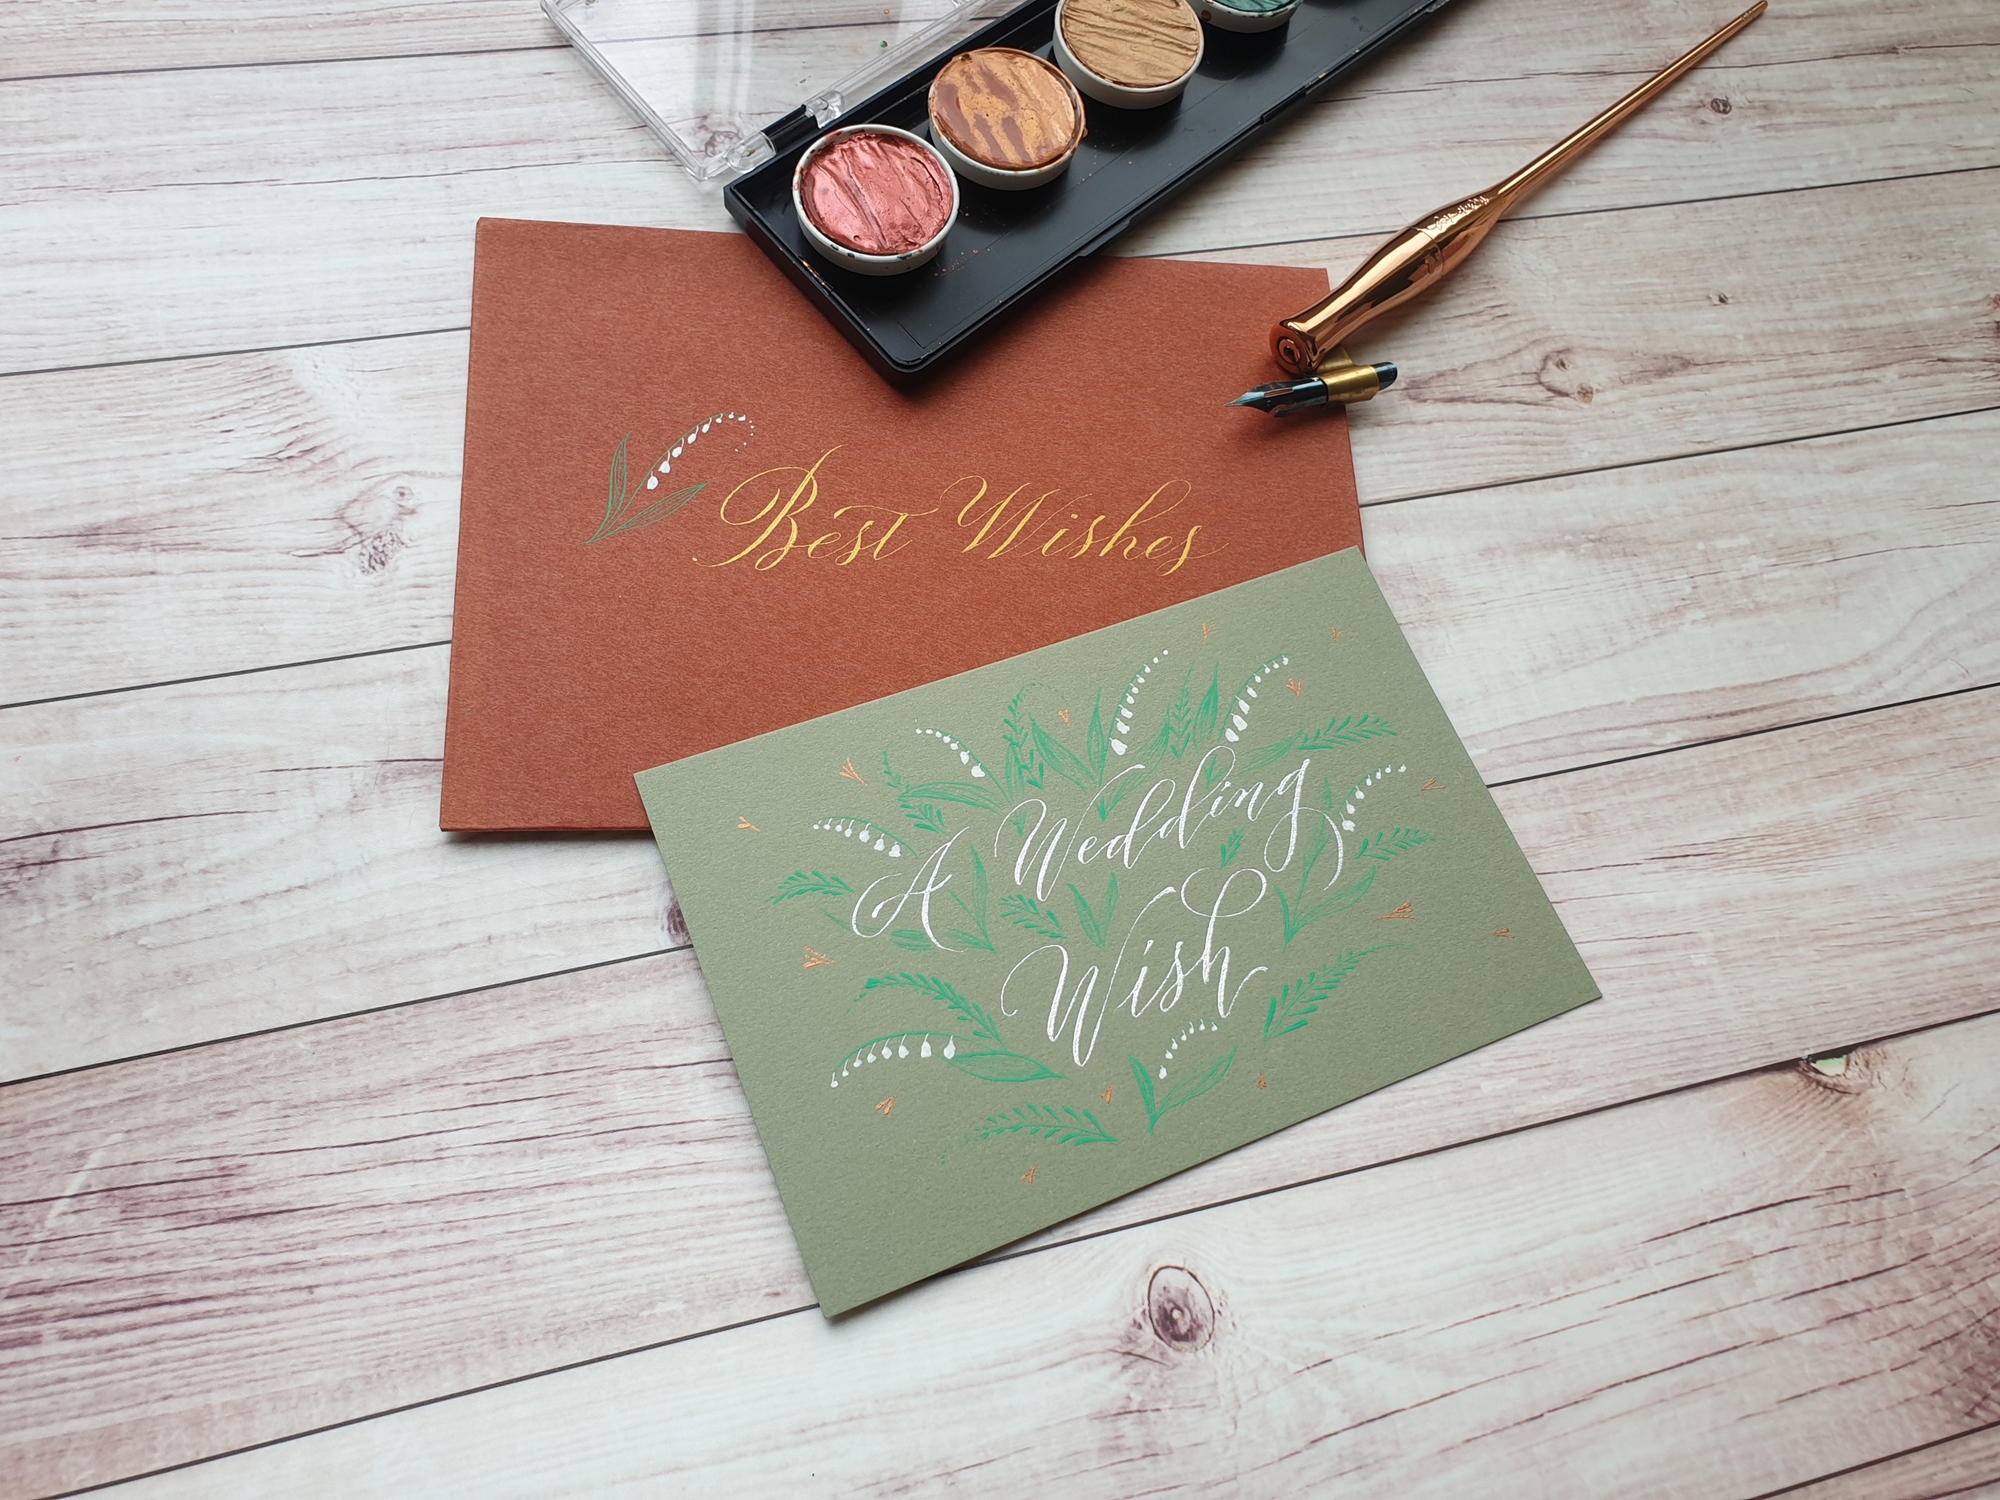 Best Wishes
A Wedding
Wish